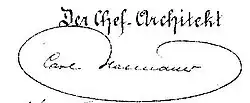 Der Chef-Architekt
Carl Hasenauer